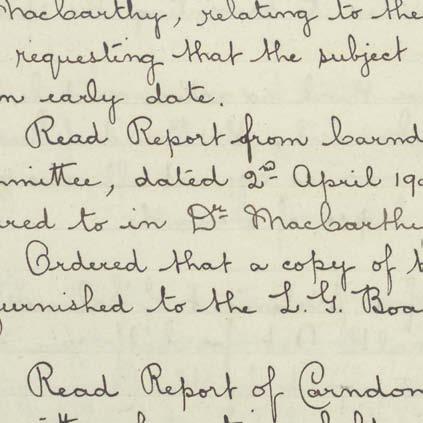 MacCarthy, relating to the
requesting that the subject
n early date.
Read Report from Carnd
mmittee, dated 2nd April 19
red to in Dr MacCarthy
Ordered that a copy of t
furnished to the L. G. Boa
Read Report of Carndon